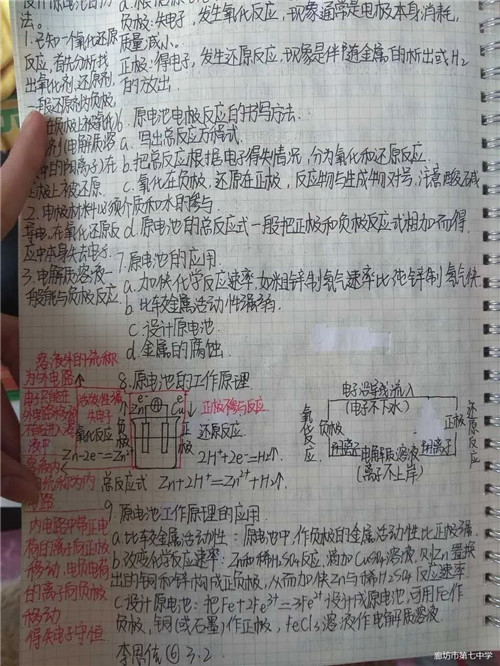 法。
负极:失电子,发生氧化反应,现象通常是电极本身消耗,
质量减小。
正极:得电子,发生还原反应,现象是伴随金属的析出或H2
的放出
1.已知一个氧化还原
反应,首先分析找
出氧化剂、还原剂,
一般还原剂为负极,
在负极上被氧化
正极上被还原
2.电极材料必须
导电,
3.电解质溶液一
般能与负极反应.
6.原电池电极反应的书写方法:
a.写出总反应方程式.
b.把总反应根据电子得失情况,分为氧化和还原反应.
c.氧化在负极,还原在正极,反应物与生成物对号,注意酸碱
介质和水的参与.
d.原电池的总反应式一般把正极和负极反应式相加而得.
7.原电池的应用.
a.加快化学反应速率.如粗锌制氢气速率比纯锌制氢气快
b.比较金属活动性强弱.
c.设计原电池.
d.金属的腐蚀.
8.原电池的工作原理
e- e-
Zn Cu
失电子
氧化反应
负极
正极
还原反应
正极不参与反应
Zn-2e-=Zn2+
2H++2e-=H2↑
总反应式 Zn+2H+=Zn2++H2↑
电子沿导线流入
(电子不下水)
氧化反应
负极
正极
还原反应
阴离子
电解质溶液
阳离子
(离子不上岸)
内电路中带正电
荷的离子向正极
移动,带负电荷
的离子向负极
移动
得失电子守恒
9.原电池工作原理的应用.
a.比较金属活动性:原电池中,作负极的金属活动性比正极强.
b.改变化学反应速率:Zn和稀H2SO4反应,滴加CuSO4溶液,则Zn置换
出的铜和锌构成正负极,从而加快Zn与稀H2SO4反应速率
c.设计原电池:把Fe+2Fe3+=3Fe2+设计成原电池,可用Fe作
负极,铜(或石墨)作正极,FeCl3溶液作电解质溶液.
⑥3.2
廊坊市第七中学